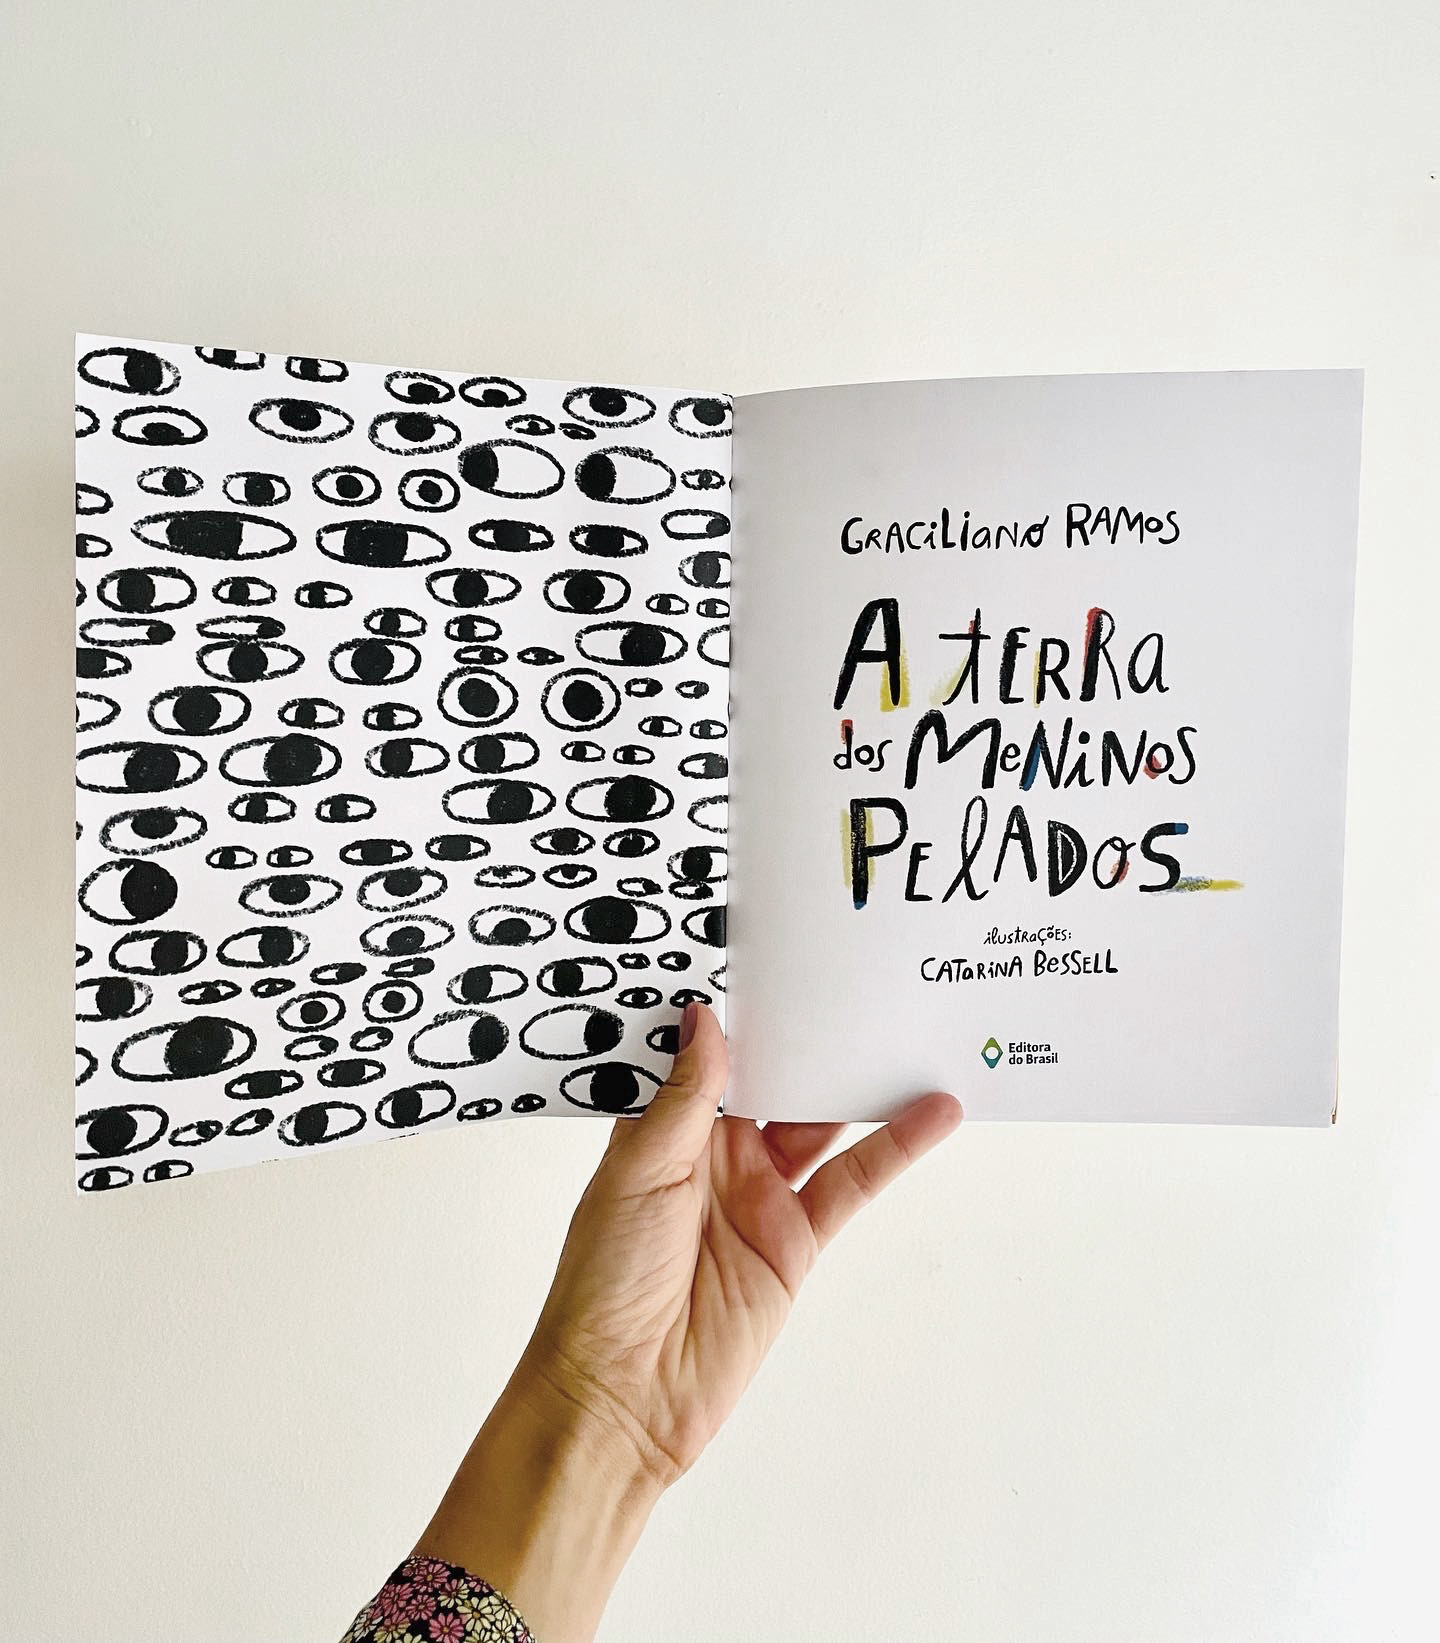 Graciliano Ramos
A terra
dos Meninos
Pelados
ilustrações:
Catarina Bessell
Editora
do Brasil